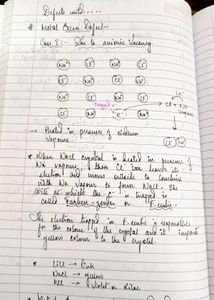 Defects in solids.....
# Metal Excess Defect -
Case I:- Due to anionic Vacancy
Na⁺ Cl⁻ Na⁺ Cl⁻
Cl⁻ Na⁺ Cl⁻ Na⁺
Na⁺ Cl⁻ Na⁺ Cl⁻
Trapped
Cl⁻ Na⁺ e⁻ Na⁺
Cl + Na
Vapours
→ Heated in presence of sodium
vapours.
Cl⁻ Na⁺
* When NaCl crystal is heated in presence of
Na vapours, then Cl⁻ ion leaves its
electron and moves outside to combine
with Na vapour to form NaCl. The
site at which the e⁻ is trapped is
called Farben-zenter or F-centre.
The electron trapped in F-centre is responsible
for the colour of the crystal and it imparts
yellow colour to the crystal.
LiCl → Pink
NaCl → yellow
KCl → Violet or Lilac